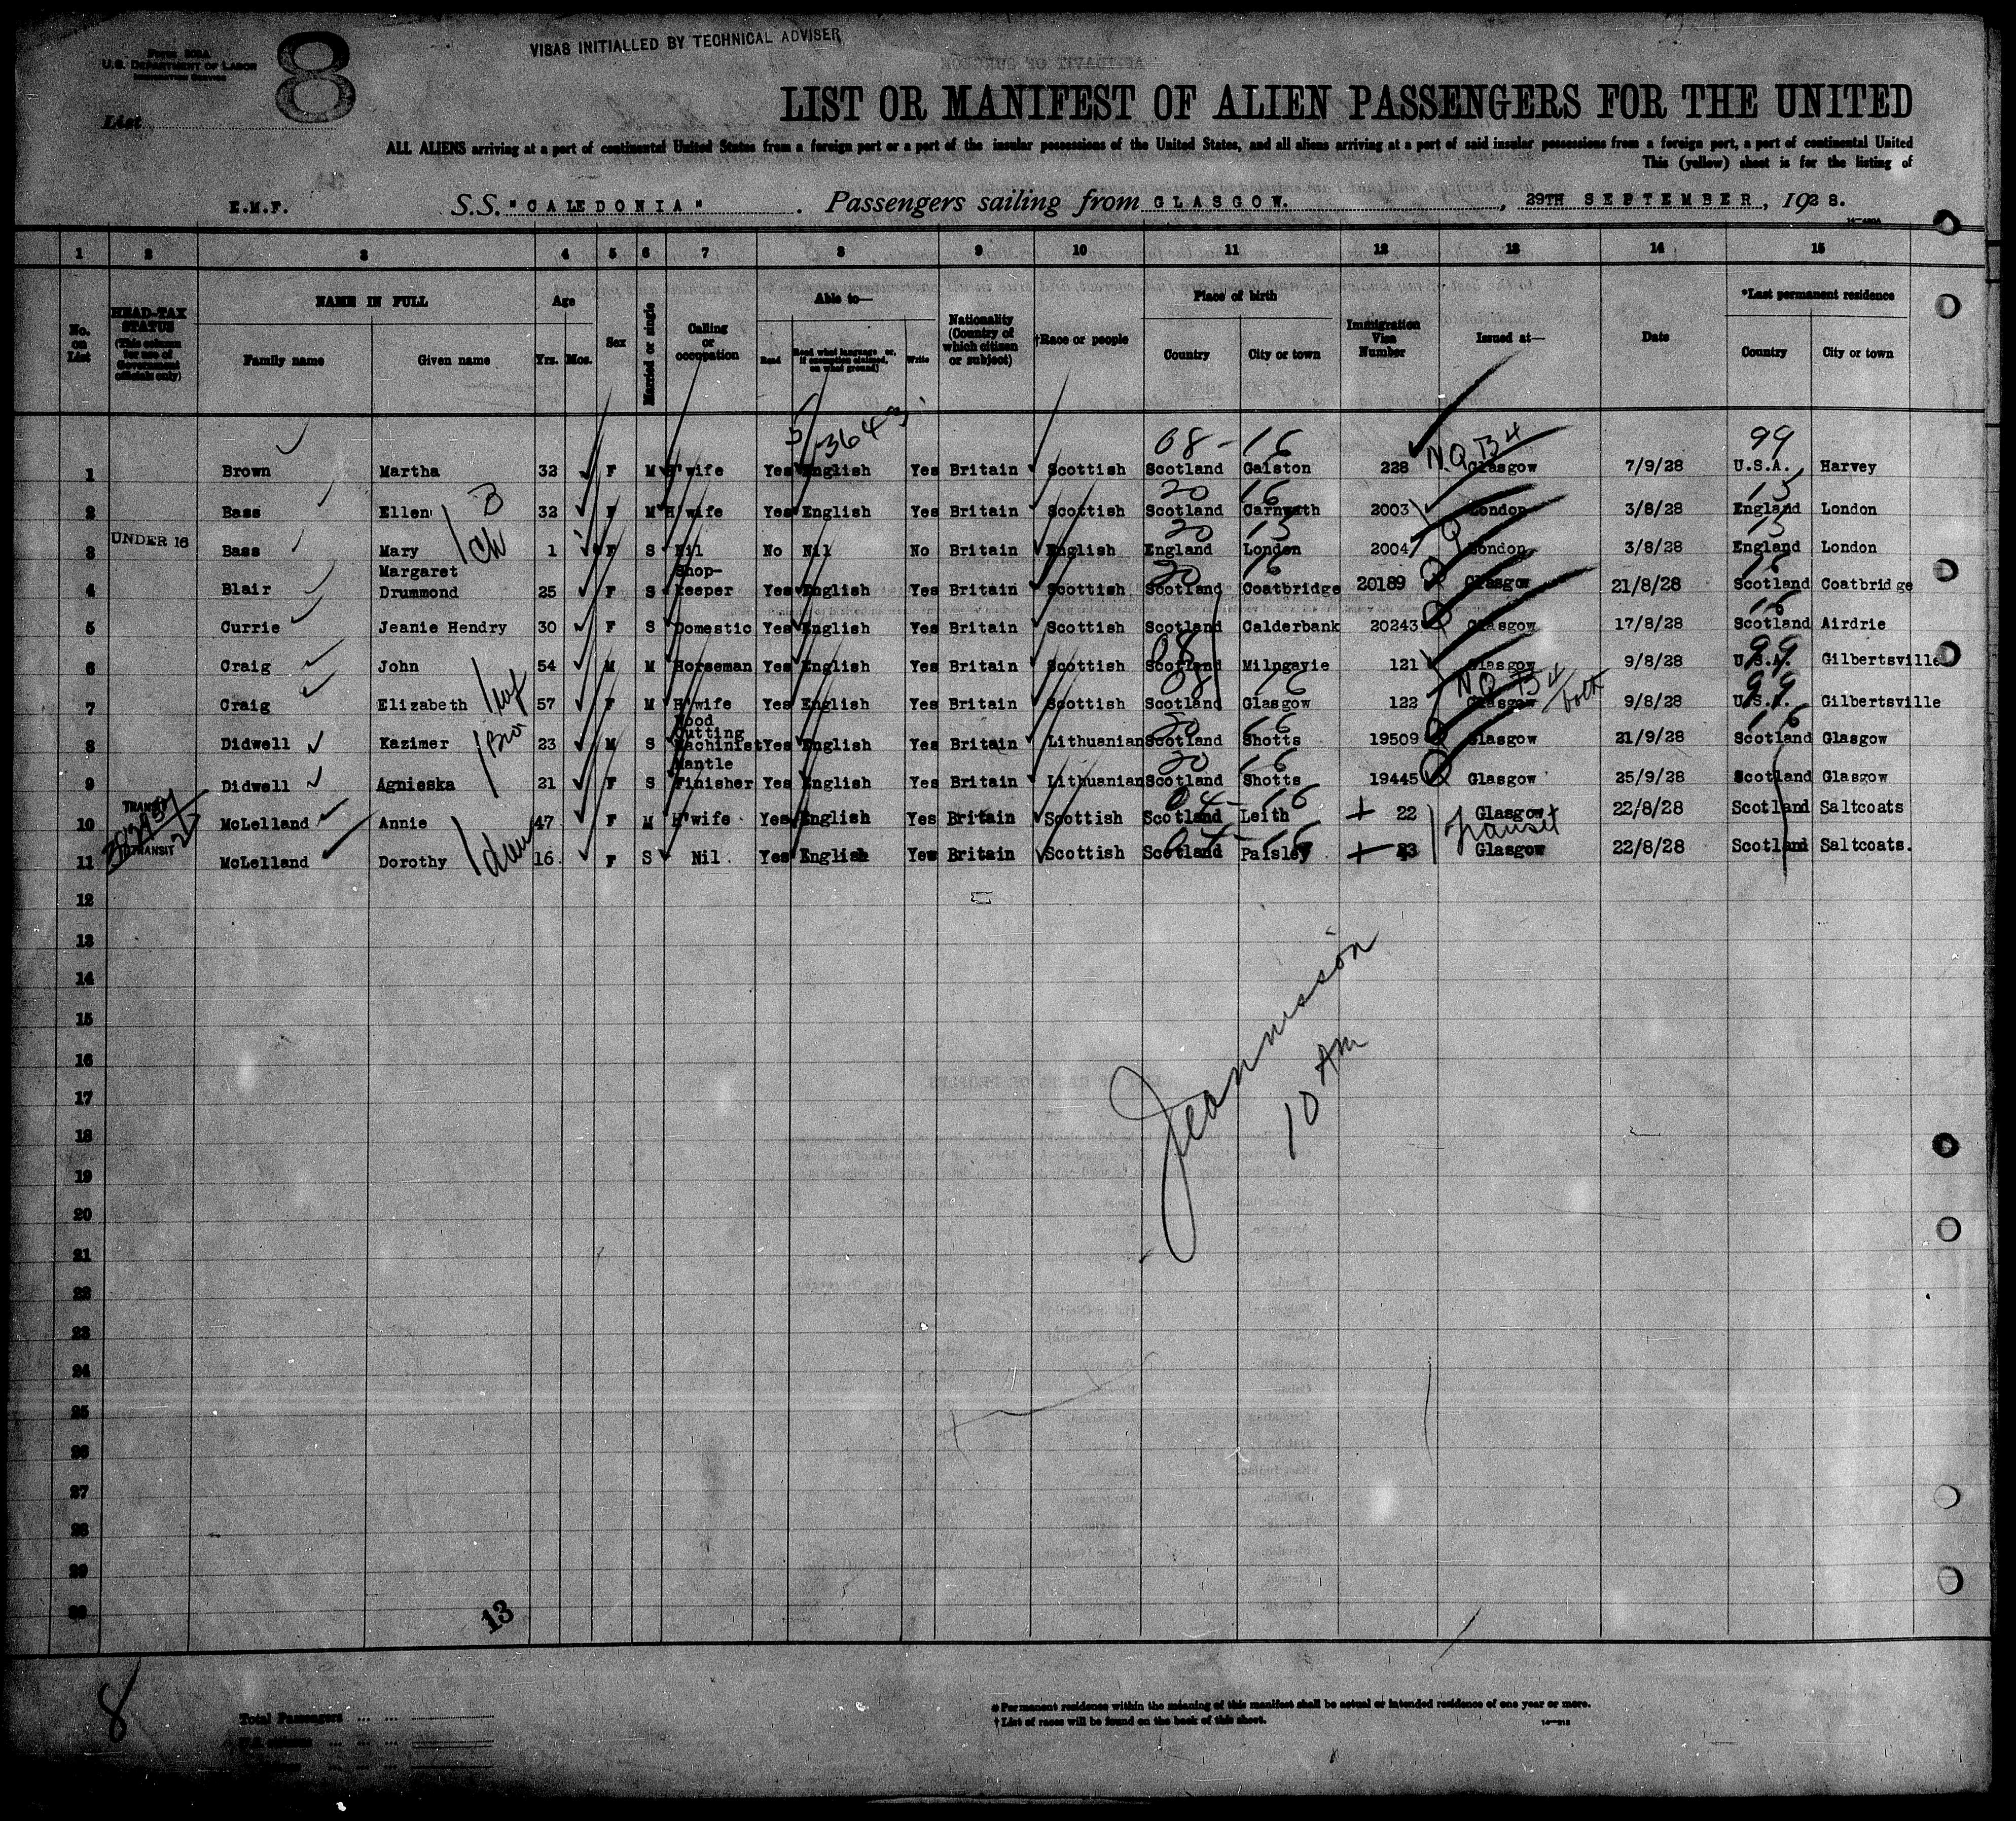 Form 500A
U.S. DEPARTMENT OF LABOR
IMMIGRATION SERVICE
8
VISAS INITIALLED BY TECHNICAL ADVISER
List
LIST OR MANIFEST OF ALIEN PASSENGERS FOR THE UNITED
ALL ALIENS arriving at a port of continental United States from a foreign port or a port of the insular possessions of the United States, and all aliens arriving at a port of said insular possessions from a foreign port, a port of continental United
This (yellow) sheet is for the listing of
S.S. "CALEDONIA". Passengers sailing from GLASGOW., 29TH SEPTEMBER, 1928.
1 2 3 4 5 6 7 8 9 10 11 12 13 14 15
No. on List
HEAD-TAX STATUS (This column for use of Government officials only)
NAME IN FULL
Family name Given name
Age
Yrs. Mos.
Sex
Married or single
Calling or occupation
Able to—
Read Read what language or, if exemption claimed, on what ground) Write
Nationality (Country of which citizen or subject)
†Race or people
Place of birth
Country City or town
Immigration Visa Number
Issued at—
Date
*Last permanent residence
Country City or town
08-16 N.Q.B4 99
1 Brown Martha 32 F M H'wife Yes English Yes Britain Scottish Scotland Galston 228 Glasgow 7/9/28 U.S.A. Harvey
20 16 15
2 Bass Ellen 32 F M H'wife Yes English Yes Britain Scottish Scotland Carnwath 2003 London 3/8/28 England London
UNDER 16 20 15 15
3 Bass Mary ch 1 F S Nil No Nil No Britain English England London 2004 London 3/8/28 England London
20 16 16
4 Blair Margaret Drummond 25 F S Shop-keeper Yes English Yes Britain Scottish Scotland Coatbridge 20189 Glasgow 21/8/28 Scotland Coatbridge
16
5 Currie Jeanie Hendry 30 F S Domestic Yes English Yes Britain Scottish Scotland Calderbank 20243 Glasgow 17/8/28 Scotland Airdrie
08 99
6 Craig John 54 M M Horseman Yes English Yes Britain Scottish Scotland Milngavie 121 Glasgow 9/8/28 U.S.A. Gilbertsville
08 16 N.Q.B4 both 99
7 Craig Elizabeth wf 57 F M H'wife Yes English Yes Britain Scottish Scotland Glasgow 122 Glasgow 9/8/28 U.S.A. Gilbertsville
20 16 16
8 Didwell Kazimer 23 M S Wood Cutting Machinist Yes English Yes Britain Lithuanian Scotland Shotts 19509 Glasgow 21/9/28 Scotland Glasgow
20 16
9 Didwell Agnieska 21 F S Mantle Finisher Yes English Yes Britain Lithuanian Scotland Shotts 19445 Glasgow 25/9/28 Scotland Glasgow
04-16
10 TRANSIT McLelland Annie 47 F M H'wife Yes English Yes Britain Scottish Scotland Leith 22 Glasgow 22/8/28 Scotland Saltcoats
04-16 Transit
11 TRANSIT McLelland Dorothy 16 F S Nil Yes English Yes Britain Scottish Scotland Paisley 23 Glasgow 22/8/28 Scotland Saltcoats.
12
13
14
15
16
17
18
19
20
21
22
23
24
25
26
27
28
29
30
10 AM
13
8
Total Passengers
* Permanent residence within the meaning of this manifest shall be actual or intended residence of one year or more.
† List of races will be found on the back of this sheet.